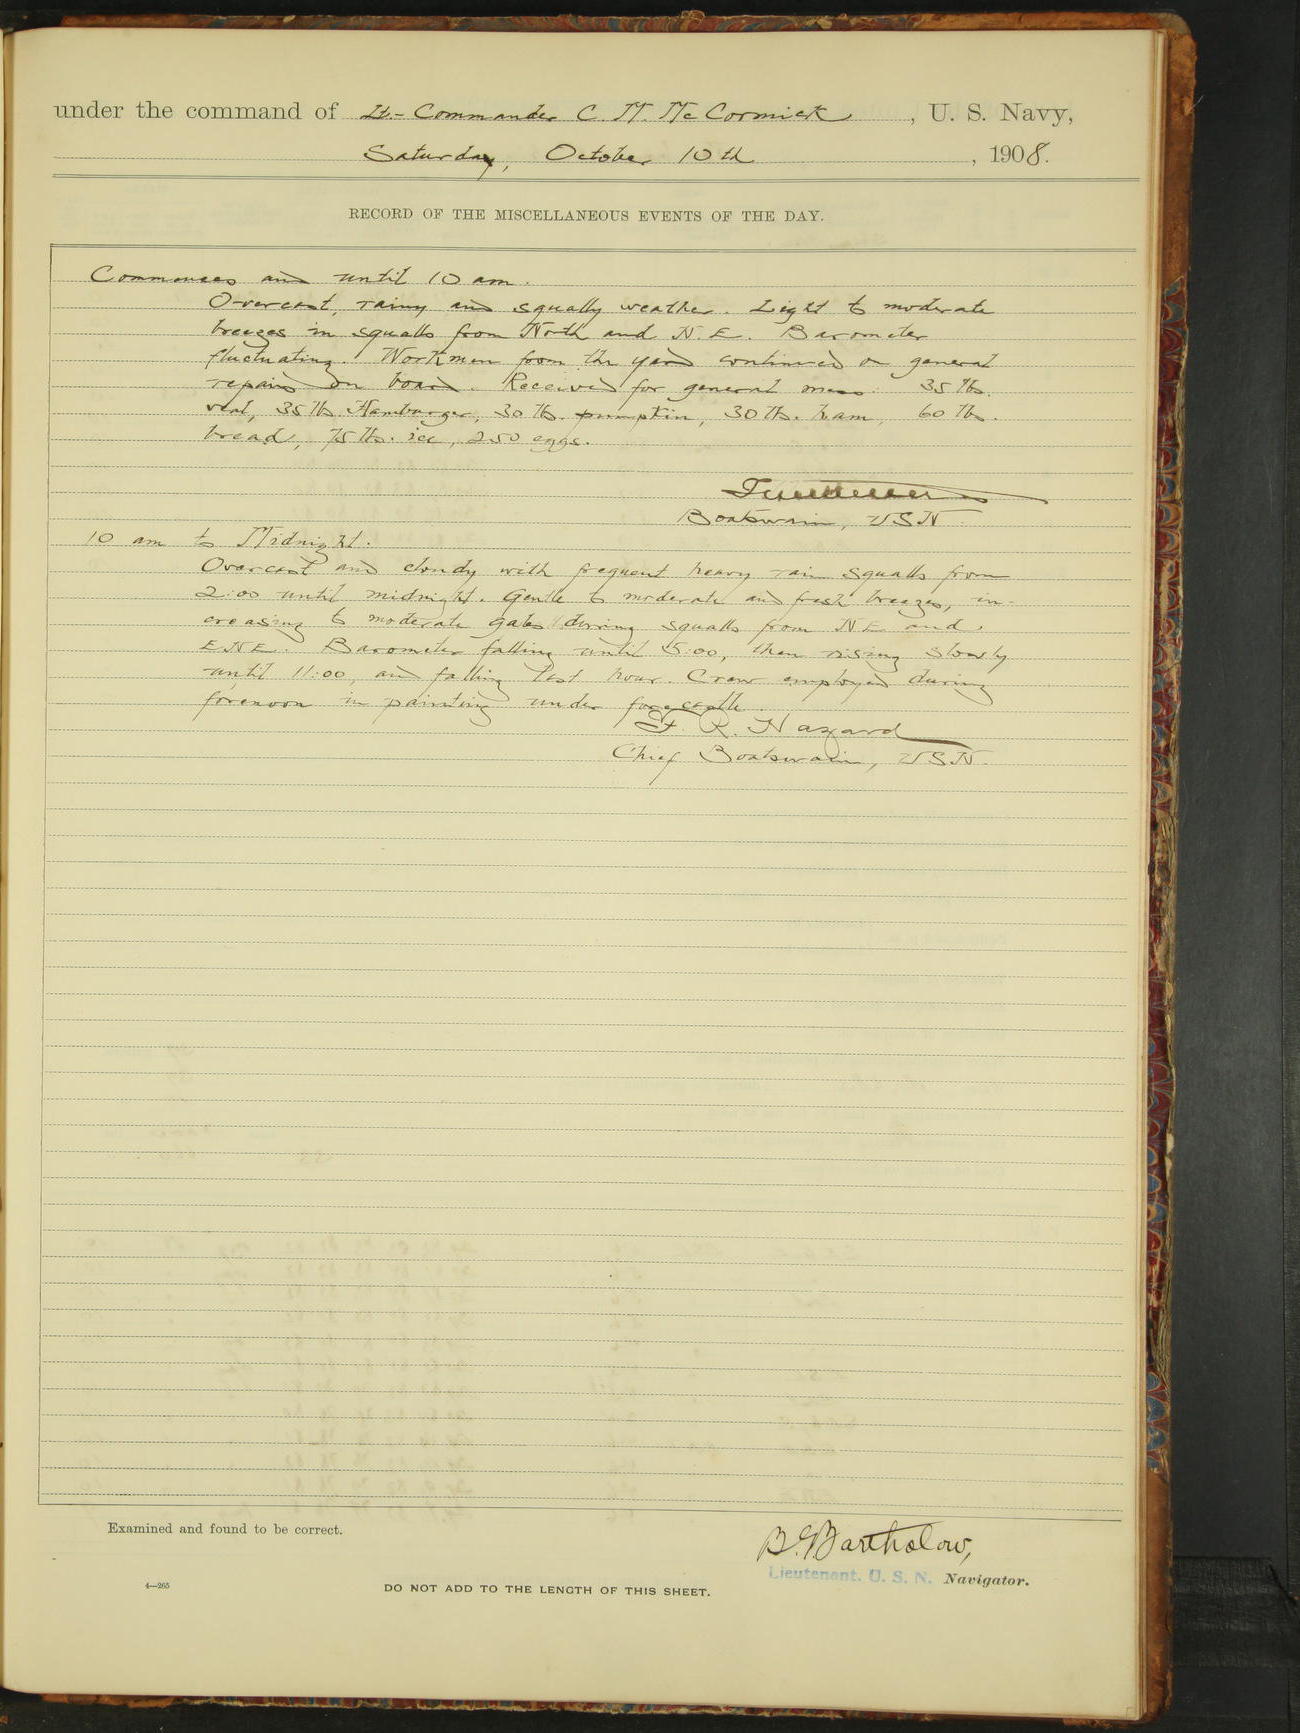 under the command of Lt.-Commander C. M. McCormick, U. S. Navy,
Saturday, October 10th, 1908.
RECORD OF THE MISCELLANEOUS EVENTS OF THE DAY.
Commences and until 10 am.
Overcast, rainy and squally weather. Light to moderate
breezes in squalls from North and N.E. Barometer
fluctuating. Workmen from the yard continued on general
repairs on board. Received for general mess: 35 lbs.
veal, 35 lb. Hamburger, 30 lb. pumpkin, 30 lb. ham, 60 lbs.
bread, 75 lbs. ice, 250 eggs.
Boatswain, USN
10 am to Midnight.
Overcast and cloudy with frequent heavy rain squalls from
2:00 until midnight. Gentle to moderate and fresh breezes, in-
creasing to moderate gales during squalls from NE and
ENE. Barometer falling until 5:00, then rising slowly
until 11:00, and falling last hour. Crew employed during
forenoon in painting under forecastle.
R. Hazard
Chief Boatswain, USN.
Examined and found to be correct.
B. G. Barthalow,
Lieutenant. U. S. N. Navigator.
4—265
DO NOT ADD TO THE LENGTH OF THIS SHEET.